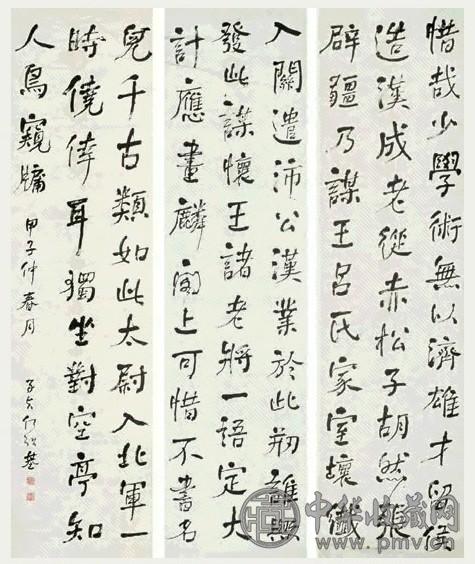 惜哉少學術無以濟雄才留侯
造漢成老從赤松子胡然張
辟疆乃謀王呂氏家室壞纖
入關遣沛公漢業於此刱雖無
發此謀懷王諸老將一語定大
計應畫麟閣上可惜不書名
兒千古類如此太尉入北軍一
時僥倖耳獨坐對空亭知
人鳥窺牖 甲子仲春月 子貞何紹基
中华收藏网
www.pmv.cn